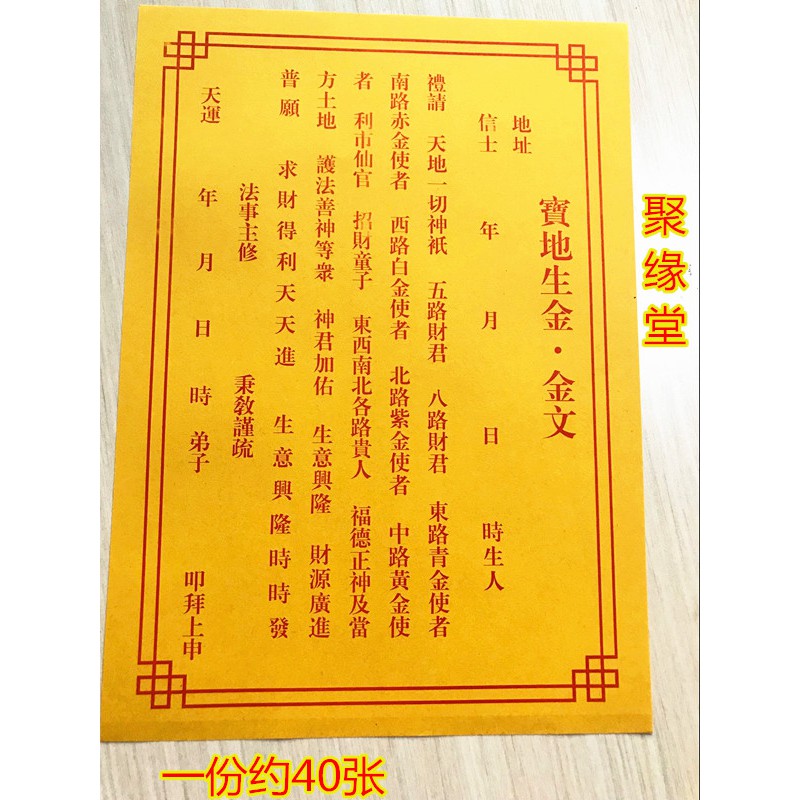 寶地生金·金文
地址
信士 年 月 日 時生人
禮請 天地一切神祇 五路財君 八路財君 東路青金使者
南路赤金使者 西路白金使者 北路紫金使者 中路黃金使
者 利市仙官 招財童子 東西南北各路貴人 福德正神及當
方土地 護法善神等眾 神君加佑 生意興隆 財源廣進
普願 求財得利天天進 生意興隆時時發
法事主修 秉教謹疏
天運 年 月 日 時 弟子 叩拜上申
聚缘堂
一份约40张